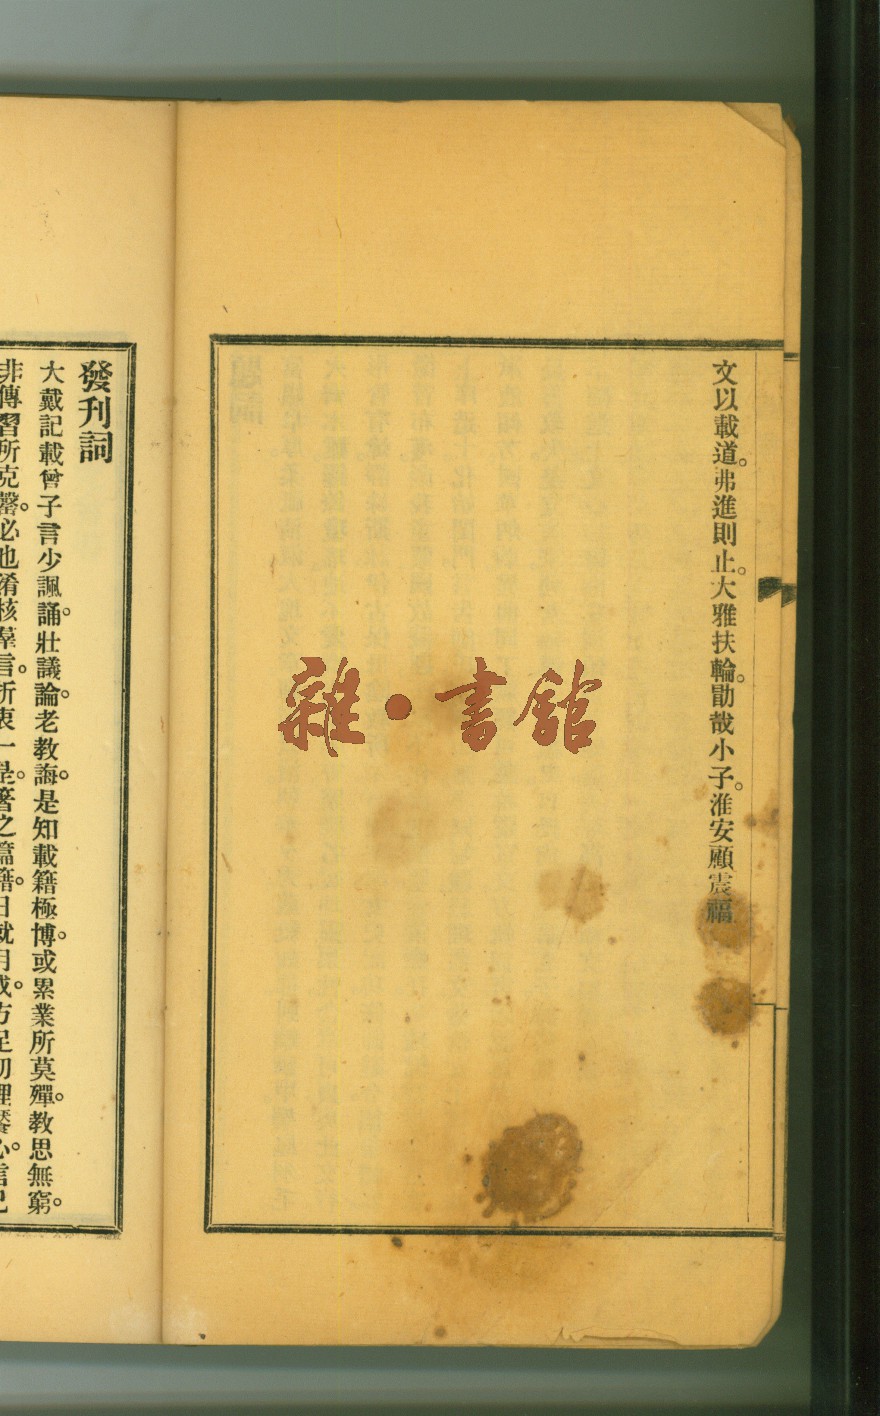 文以載道。弗進則止。大雅扶輪。勖哉小子。淮安顧震福
雜·書館
發刊詞
大戴記載曾子言少諷誦。壯議論。老教誨。是知載籍極博。或累業所莫殫。教思無窮。
非傳習所克罄。必也肴核羣言。折衷一是。著之篇籍。日就月成。方足